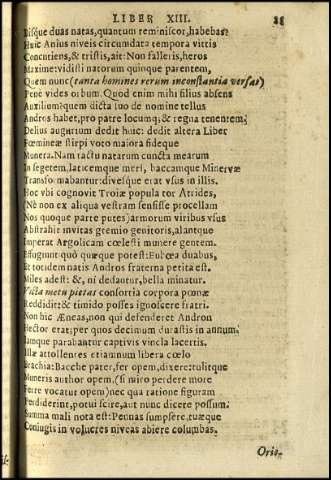 LIBER XIII. 28
Bisque duas natas, quantum reminiscor, habebas?
Huic Anius niveis circumdata tempora vittis
Concutiens, & tristis, ait: Non falleris, heros
Maxime: vidisti natorum quinque parentem,
Quem nunc (tanta homines rerum inconstantia versat)
Pene vides orbum. Quod enim mihi filius absens
Auxilium? quem dicta suo de nomine tellus
Andros habet, pro patre locumq; & regna tenentem.
Delius augurium dedit huic: dedit altera Liber
Fœmineæ stirpi voto maiora fideque
Munera. Nam tactu natarum cuncta mearum
In segetem, laticemque meri, baccamque Minervæ
Transformabantur: divesque erat vsus in illis.
Hoc vbi cognovit Troiæ populator Atrides,
(Nè non ex aliqua vestram sensisse procellam
Nos quoque parte putes) armorum viribus vsus
Abstrahit invitas gremio genitoris, alantque
Imperat Argolicam cœlesti munere gentem.
Effugiunt quò quæque potest: Eubœa duabus,
Et totidem natis Andros fraterna petita est.
Miles adest: &, ni dedantur, bella minatur.
Victa metu pietas consortia corpora pœnæ
Reddidit: & timido possis ignoscere fratri.
Non hic Æneas, non qui defenderet Andron
Hector erat; per quos decimum durastis in annum.
Iamque parabantur captivis vincla lacertis.
Illæ attollentes etiamnum libera cœlo
Brachia: Bacche pater, fer opem, dixere: tulitque
Muneris author opem, (si miro perdere more
Ferre vocatur opem) nec qua ratione figuram
Perdiderint, potui scire, aut nunc dicere possum.
Summa mali nota est: Pennas sumpsere, tuæque
Coniugis in volucres niveas abiere columbas.
Orio-